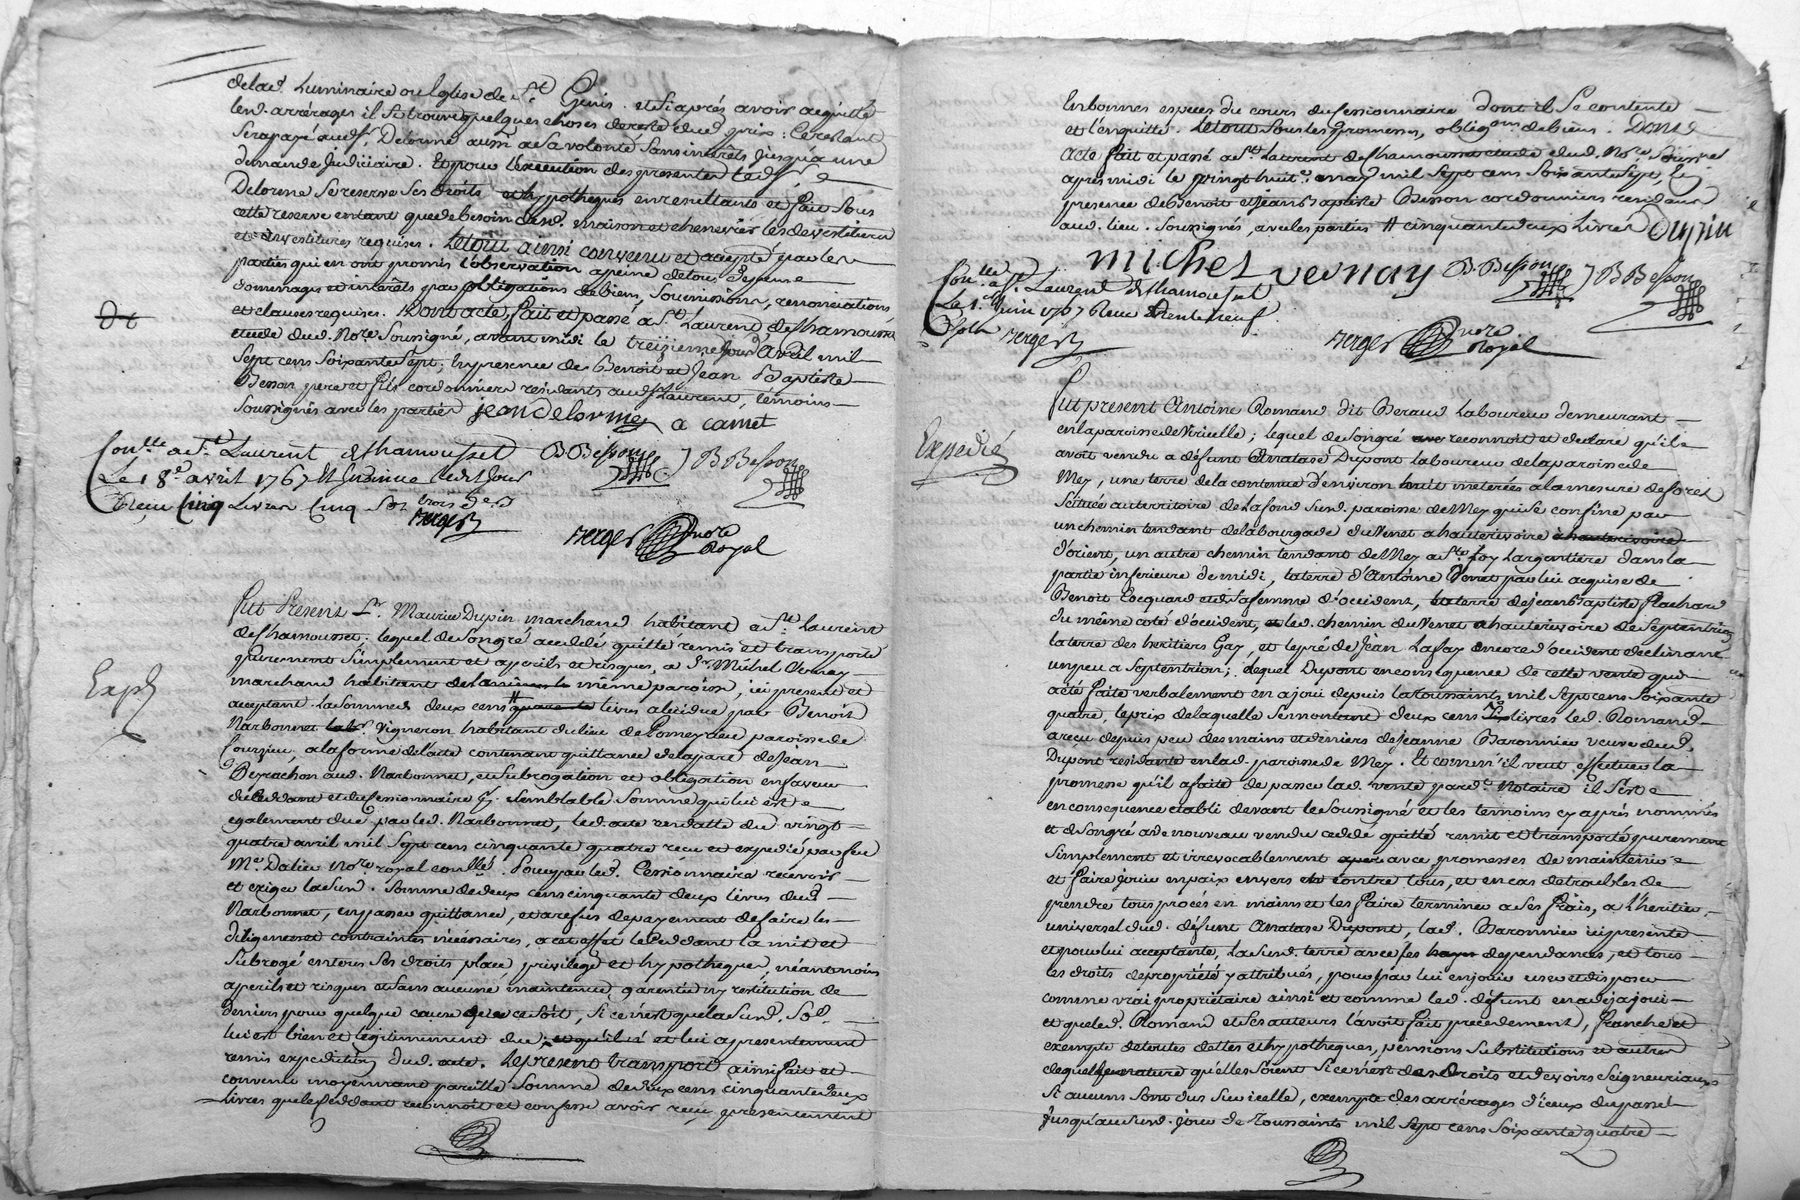 delad. Luminaire ou Eglise de St. Genis. et si après avoir acquitté
lesd. arrérages il se trouve quelques choses de reste dud. prix; le restant
sera payé aud. Sr. Delorme aussi a sa volonté sans interêts jusqu'a une
demande judiciaire. Et pour l'execution des presentes led. Sr.
Delorme se reserve ses droits et hypotheques en resultants et fait sous
cette reserve entant que de besoin desd. maison et chenevier les devestitures
et investitures requises. Letout ainsi convenu et accepté par les
parties qui en ont promis l'observation a peine de tous depens
dommages et interêts par obligations de biens, soumissions, renonciations
et clauses requises. Dont acte, fait et passé a St. Laurend de Chamousset
etude dud. Nore. soussigné, avant midi le treizieme jour d'avril mil
sept cens soixante sept; En presence de Benoit et Jean Baptiste
Besson pere et fils cordonniers residants aud. St. Laurent, témoins
soussignés avec les parties jean delorme a camet
B. Besson J B Besson
Conlle. a St. Laurent de Chamousset
Le 18e. avril 1767
Reçu Cinq Livres Cinq Sols trois ds.
Berger
Berger nore Royal
Expd.
Fut Present Sr. Maurice Dupin marchand habitant a St. Laurent
de Chamousset. lequel de son gré a cedé quitté remis et transporté
purement simplement et a perils et risques, a Sr. Michel Vernay
marchand habitant de la même paroisse, ici present et
acceptant. La somme de deux cens # livres a lui due par Benoit
Narbonnet Vigneron habitant du lieu de Pomeyrieu paroisse de
Courzieu, a la forme de l'acte contenant quittance de la part de Jean
Peyrachon aud. Narbonnet, et subrogation et obligation en faveur
du Ceddant et du Cessionnaire pr. semblable somme qui lui est
egalement due par led. Narbonnet, led. acte en datte du vingt
quatre avril mil sept cens cinquante quatre reçu et expedié par feu
Me. Dalieu Nore. royal conllé. Pour par led. Céssionnaire recevoir
et exiger lasusd. somme de deux cens cinquante deux livres dud.
Narbonnet, en passer quittance, et a refus de payement de faire les
diligences et contraintes nécessaires, a cet effet le Ceddant la mit et
subrogé en tous ses droits place, privilege et hypotheque, néantmoins
a perils et risques et sans aucune maintenue, garentie ny restitution de
deniers pour quelque cause que ce soit, si ce n'est que lasusd. so.e
lui est bien et legitimement due; et lui a presentement
remis expedition dud. acte. Le present transport ainsi fait et
convenu moyennant pareille somme de deux cens cinquante deux
Livres que le Ceddant reconnoit et confesse avoir reçu presentement
En bonnes especes du cours du Cessionnaire dont il se contente
et l'en quitte. Letout sous les promesses, obligons. de biens. Dont
acte fait et passé a St. Laurent de Chamousset etude dud. Nore. soussigné
après midi le vingt huit. may mil sept cens soixante sept, En
presence de Benoit et Jean Baptiste Besson cordonniers residants
aud. lieu. soussignés, avec les parties # cinquante deux Livres Dupin
michel vernay B. Besson J B Besson
Conllé. a St. Laurent de Chamousset
Le 1er. Juin 1767 Reçu trente neuf
Sols Berger
Berger nore Royal
Expedié
Fut present Antoine Romand dit Beraud Laboureur demeurant
en la paroisse de Viricelle; lequel de son gré reconnoit et declare qu'il
avoit vendu a défunt Anatase Dupont laboureur de la paroisse de
Mey, une terre de la contenue d'environ huit meterées a la mesure de forêt
Scituée au territoire de Lafond susd. paroisse de Mey qui se confine par
un chemin tendant de la bourgade du Venet a hauterivoire
d'orient, un autre chemin tendant de Mey a Ste. Foy Largentiére dans la
partie inferieure de midi, la terre d'Antoine Venet par lui acquise de
Benoit Cocquard et de sa femme d'occident, la terre de Jean Baptiste Flachard
du même coté d'occident, et led. chemin du Venet a hauterivoire de septentrion,
la terre des heritiers Gay, et le pré de Jean Lafay encore d'occident declinant
un peu a septentrion; duquel Dupont en consequence de cette vente qui
a été faite verbalement en a joui depuis la toussaint mil sept cens soixante
quatre, le prix de laquelle se montant deux cens livres led. Romand
a reçu depuis peu des mains et deniers de Jeanne Baronnier veuve dud.
Dupont residante en lad. paroisse de Mey. Et comm'il veut effectuer la
promesse qu'il a faite de passer lad. vente pard.t Notaire il s'est
en consequence etabli devant le soussigné et les temoins cy après nommés
et de son gré a de nouveau vendu ceddé quitté remit et transporté purement
simplement et irrevocablement avec promesses de maintenir
et faire jouir en paix envers et contre tous, et en cas de troubles de
prendre tous procés en mains et les faire terminer a ses frais, a l'heritier
universel dud. défunt Anatase Dupont, lad. Baronnier ici presente
et pour lui acceptante, La susd. terre avec ses dependances, et tous
les droits de proprieté y attribués, pour par lui en jouir user et disposer
comme vrai propriétaire ainsi et comme led. défunt en a deja joui
et que led. Romand et ses auteurs l'avoit fait precedement, franche et
exempte de toutes dettes et hypotheques, pensions substitutions et autres
de quelque nature qu'elles soient si ce n'est des droits et devoirs seigneuriaux
si aucuns sont dus sur icelle, exempte des arrérages d'iceux du passé
jusqu'au susd. jour de Toussaints mil sept cens soixante quatre